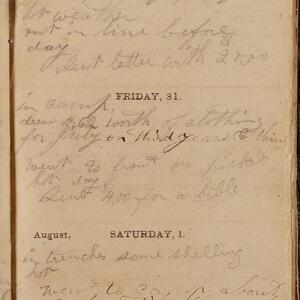 hot weather
out in line before
day
Sent letter with 20.00
FRIDAY, 31.
in camp
drew 4.62 worth of clothing
for July on third years Clothing
Went to front on picket
hot day
Sent 4.00 for a bible
August, SATURDAY, 1.
in trenches some shelling
hot
went to camp about